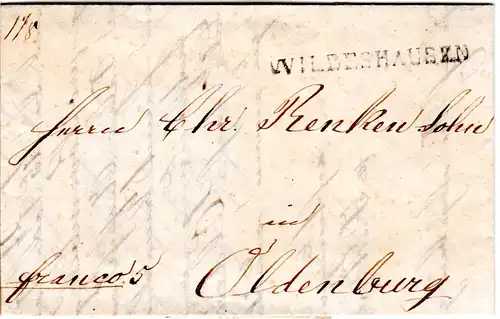 17/8
WILDESHAUSEN
Herrn Chr. Renken Sohn
in
Oldenburg
franco. 5